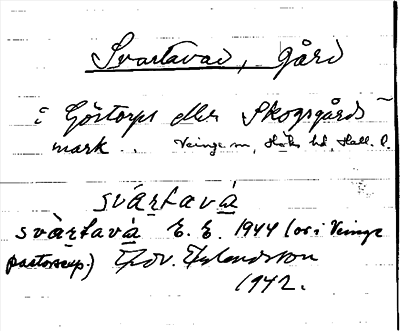 Svartavad, gård
i Göstorps eller Skogsgårds-
mark. Veinge sn, Höks hd, Hall. l.
svártavá
svàrtavá E. E. 1944 (os i Veinge
pastorsexp.) Edv. Erlandsson
1942.